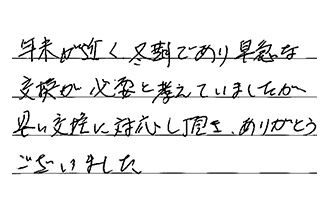 年末が近く、冬期であり早急な
交換が必要と考えていましたが
早い交換に対応し頂き、ありがとう
ございました